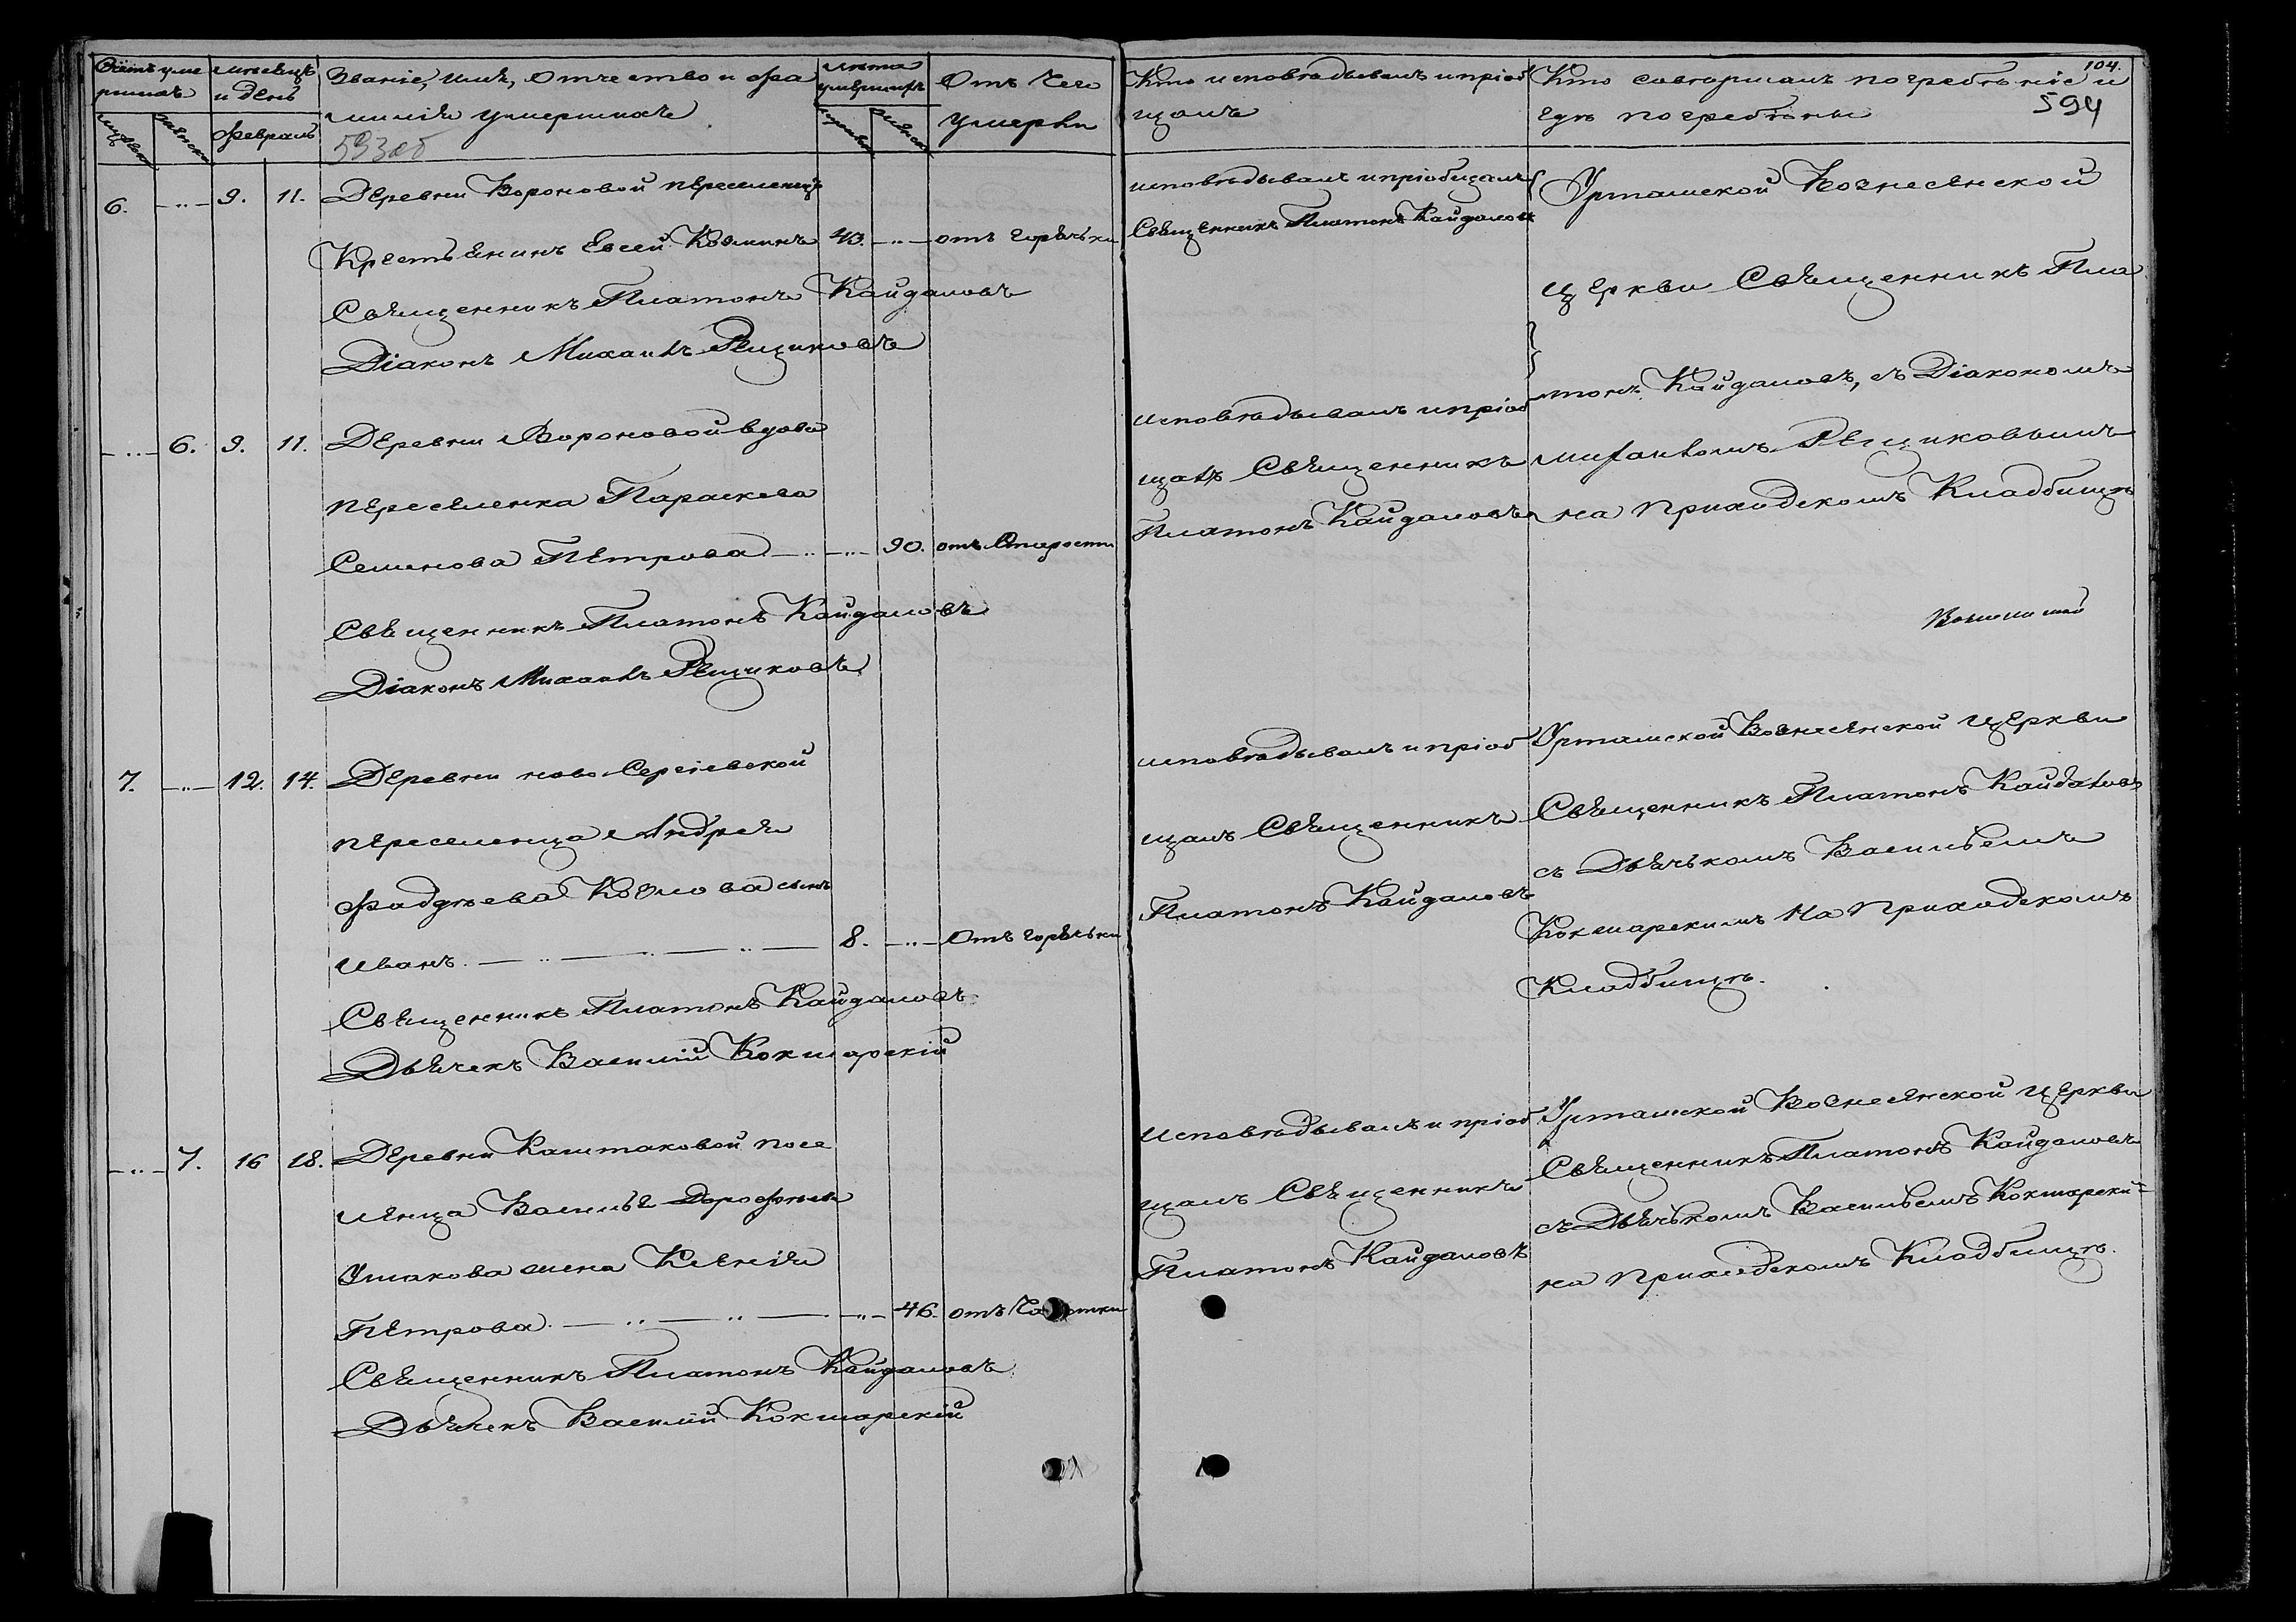 104.
594
Счетъ уме
ршихъ
мѣсяцъ
и день
Званіе, имя, отчество и фа
милія умершихъ
лѣта
умершихъ
Отъ чего
умерли
Кто исповѣдывалъ и пріоб
щалъ
Кто совершалъ погребѣніе и
гдѣ погребѣны
мужеск
женски
Февраль
мужеск
женск
593 об
6. 9. 11. Деревни Вороновой переселенецъ
Крестьянинъ Евсей Козминъ 43. отъ горячки
Священникъ Платонъ Кайдаловъ
Діаконъ Михаилъ Рещиковъ
исповѣдывалъ и пріобщалъ
Священникъ Платонъ Кайдаловъ
Урташской Вознесенской
церкви Священникъ Пла
тонъ Кайдаловъ, съ Діакономъ
Михаиломъ Рещиковымъ
на приходскомъ Кладбищѣ
6. 9. 11. Деревни Вороновой вдова
переселенка Параскева
Семенова Петрова 90. отъ Старости
Священникъ Платонъ Кайдаловъ
Діаконъ Михаилъ Рещиковъ
исповѣдывалъ и пріоб
щалъ Священникъ
Платонъ Кайдаловъ
7. 12. 14. Деревни ново-Сергіевской
переселенца Андрея
Фадѣева Козлова сынъ
Иванъ. 8. Отъ горячки
Священникъ Платонъ Кайдаловъ
Дьячекъ Василій Кокшарскій
исповѣдывалъ и пріоб
щалъ Священникъ
Платонъ Кайдаловъ
Урташской Вознесенской церкви
Священникъ Платонъ Кайдаловъ
съ Дьячькомъ Васильемъ
Кокшарскимъ на приходскомъ
Кладбищѣ.
7. 16 18. Деревни Каштаковой посе
ленца Василья Дорофѣева
Ушакова жена Ксенія
Петрова. 46. отъ Чахотки
Священникъ Платонъ Кайдаловъ
Дьячекъ Василій Кокшарскій
исповѣдывалъ и пріоб
щалъ Священникъ
Платонъ Кайдаловъ
Урташской Вознесенской церкви
Священникъ Платонъ Кайдаловъ
съ Дьячькомъ Васильемъ Кокшарски=
на приходскомъ Кладбищѣ.